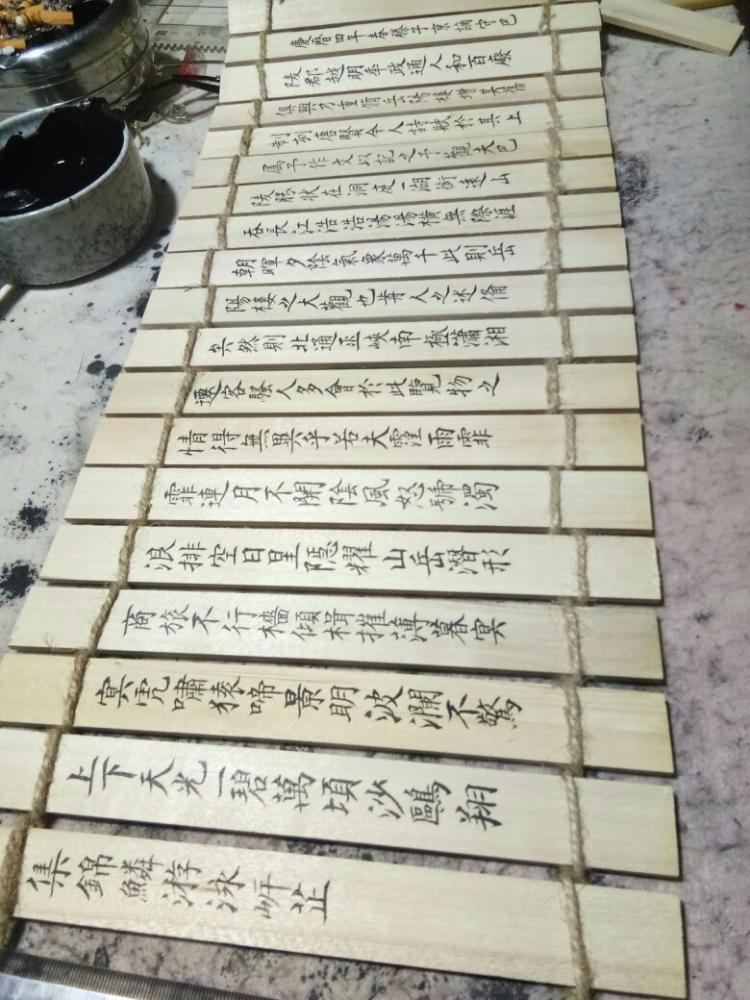 慶曆四年春滕子京謫守巴
陵郡越明年政通人和百廢
俱興乃重脩岳陽樓增其舊
制刻唐賢今人詩賦於其上
屬予作文以記之予觀夫巴
陵勝狀在洞庭一湖銜遠山
吞長江浩浩湯湯橫無際涯
朝暉夕陰氣象萬千此則岳
陽樓之大觀也前人之述備
矣然則北通巫峽南極瀟湘
遷客騷人多會於此覽物之
情得無異乎若夫霪雨霏
霏連月不開陰風怒號濁
浪排空日星隱耀山岳潛形
商旅不行檣傾楫摧薄暮冥
冥虎嘯猿啼景明波瀾不驚
上下天光一碧萬頃沙鷗翔
集錦鱗游泳岸芷